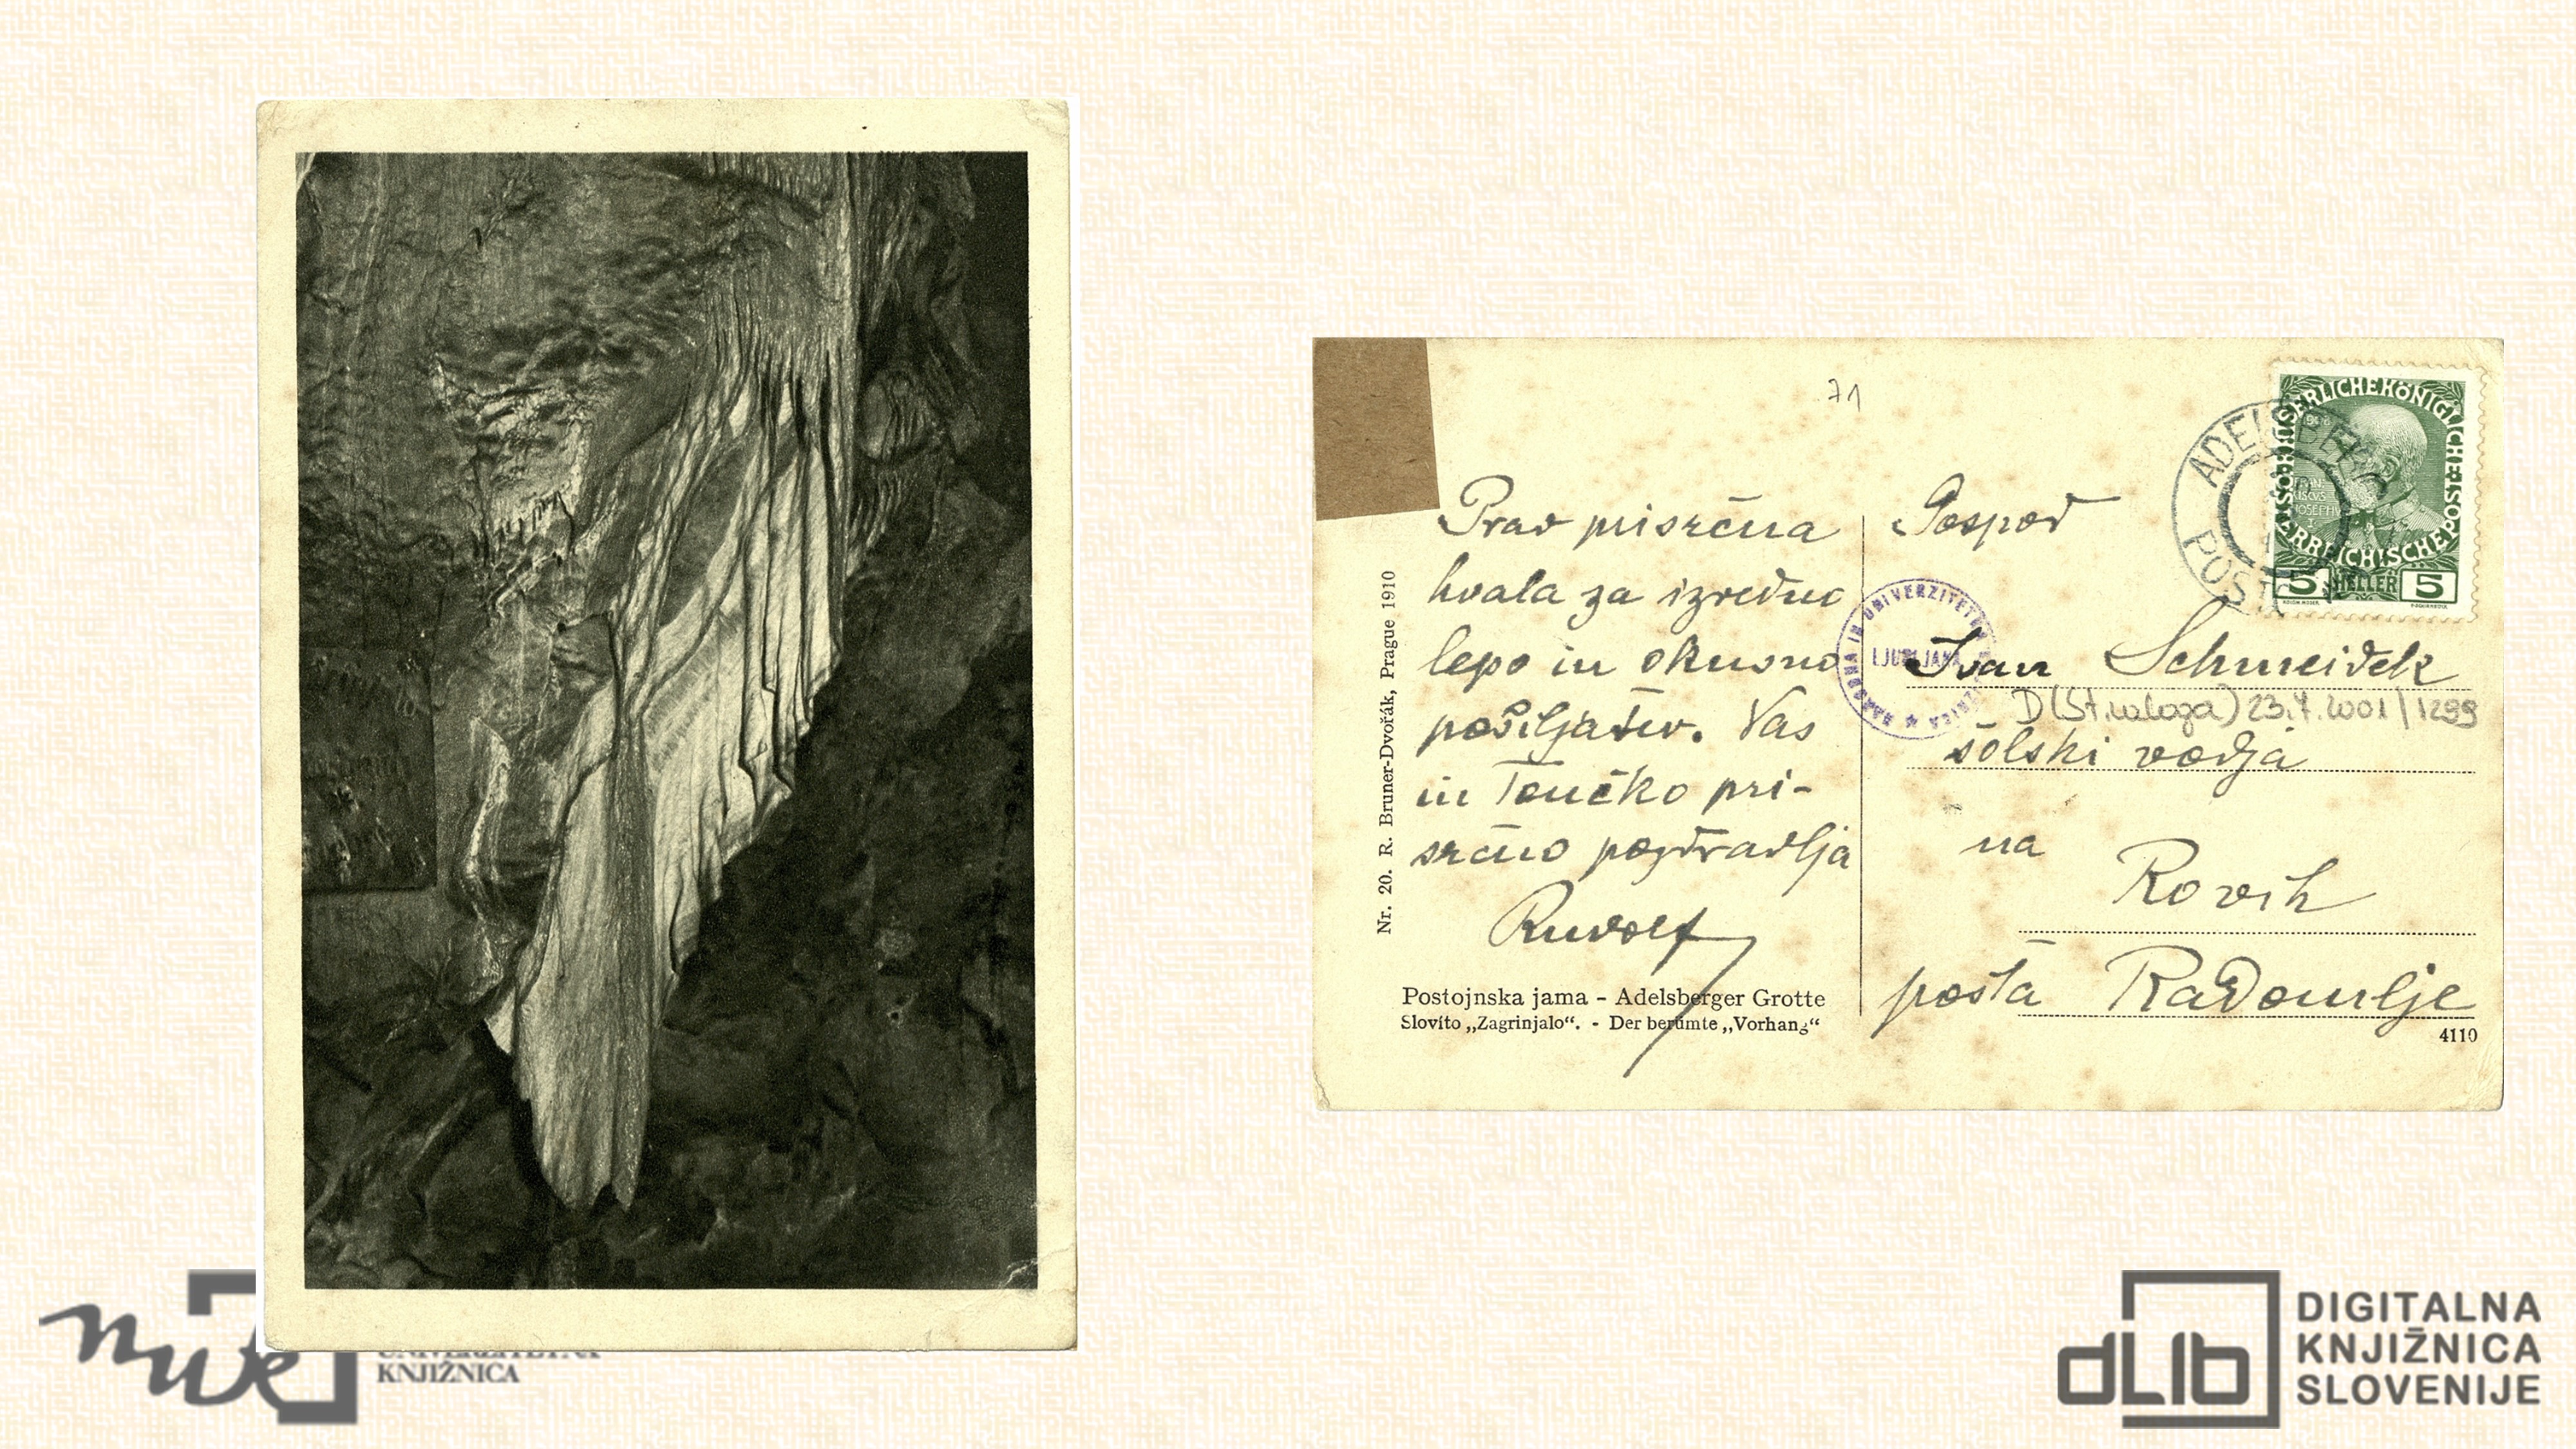 71
Prav prisrčna
hvala za izredno
lepo in okusno
pošiljatev. Vas
in Tončko pri-
srčno pozdravlja
Rudolf
Nr. 20. R. Bruner-Dvořák, Prague 1910
Postojnska jama - Adelsberger Grotte
Slovito „Zagrinjalo“. - Der berümte „Vorhang“
Gospod
Ivan Schneidek
D(St.naloga) 23.4.2001/1299
šolski vodja
na
Rovih
pošta Radomlje
4110
ADELSBERG
POST
KAISERLICHE KÖNIGLICHE ÖSTERREICHISCHE POST
5 HELLER 5
NARODNA IN UNIVERZITETNA KNJIŽNICA
LJUBLJANA
nuk
KNJIŽNICA
dLib
DIGITALNA
KNJIŽNICA
SLOVENIJE